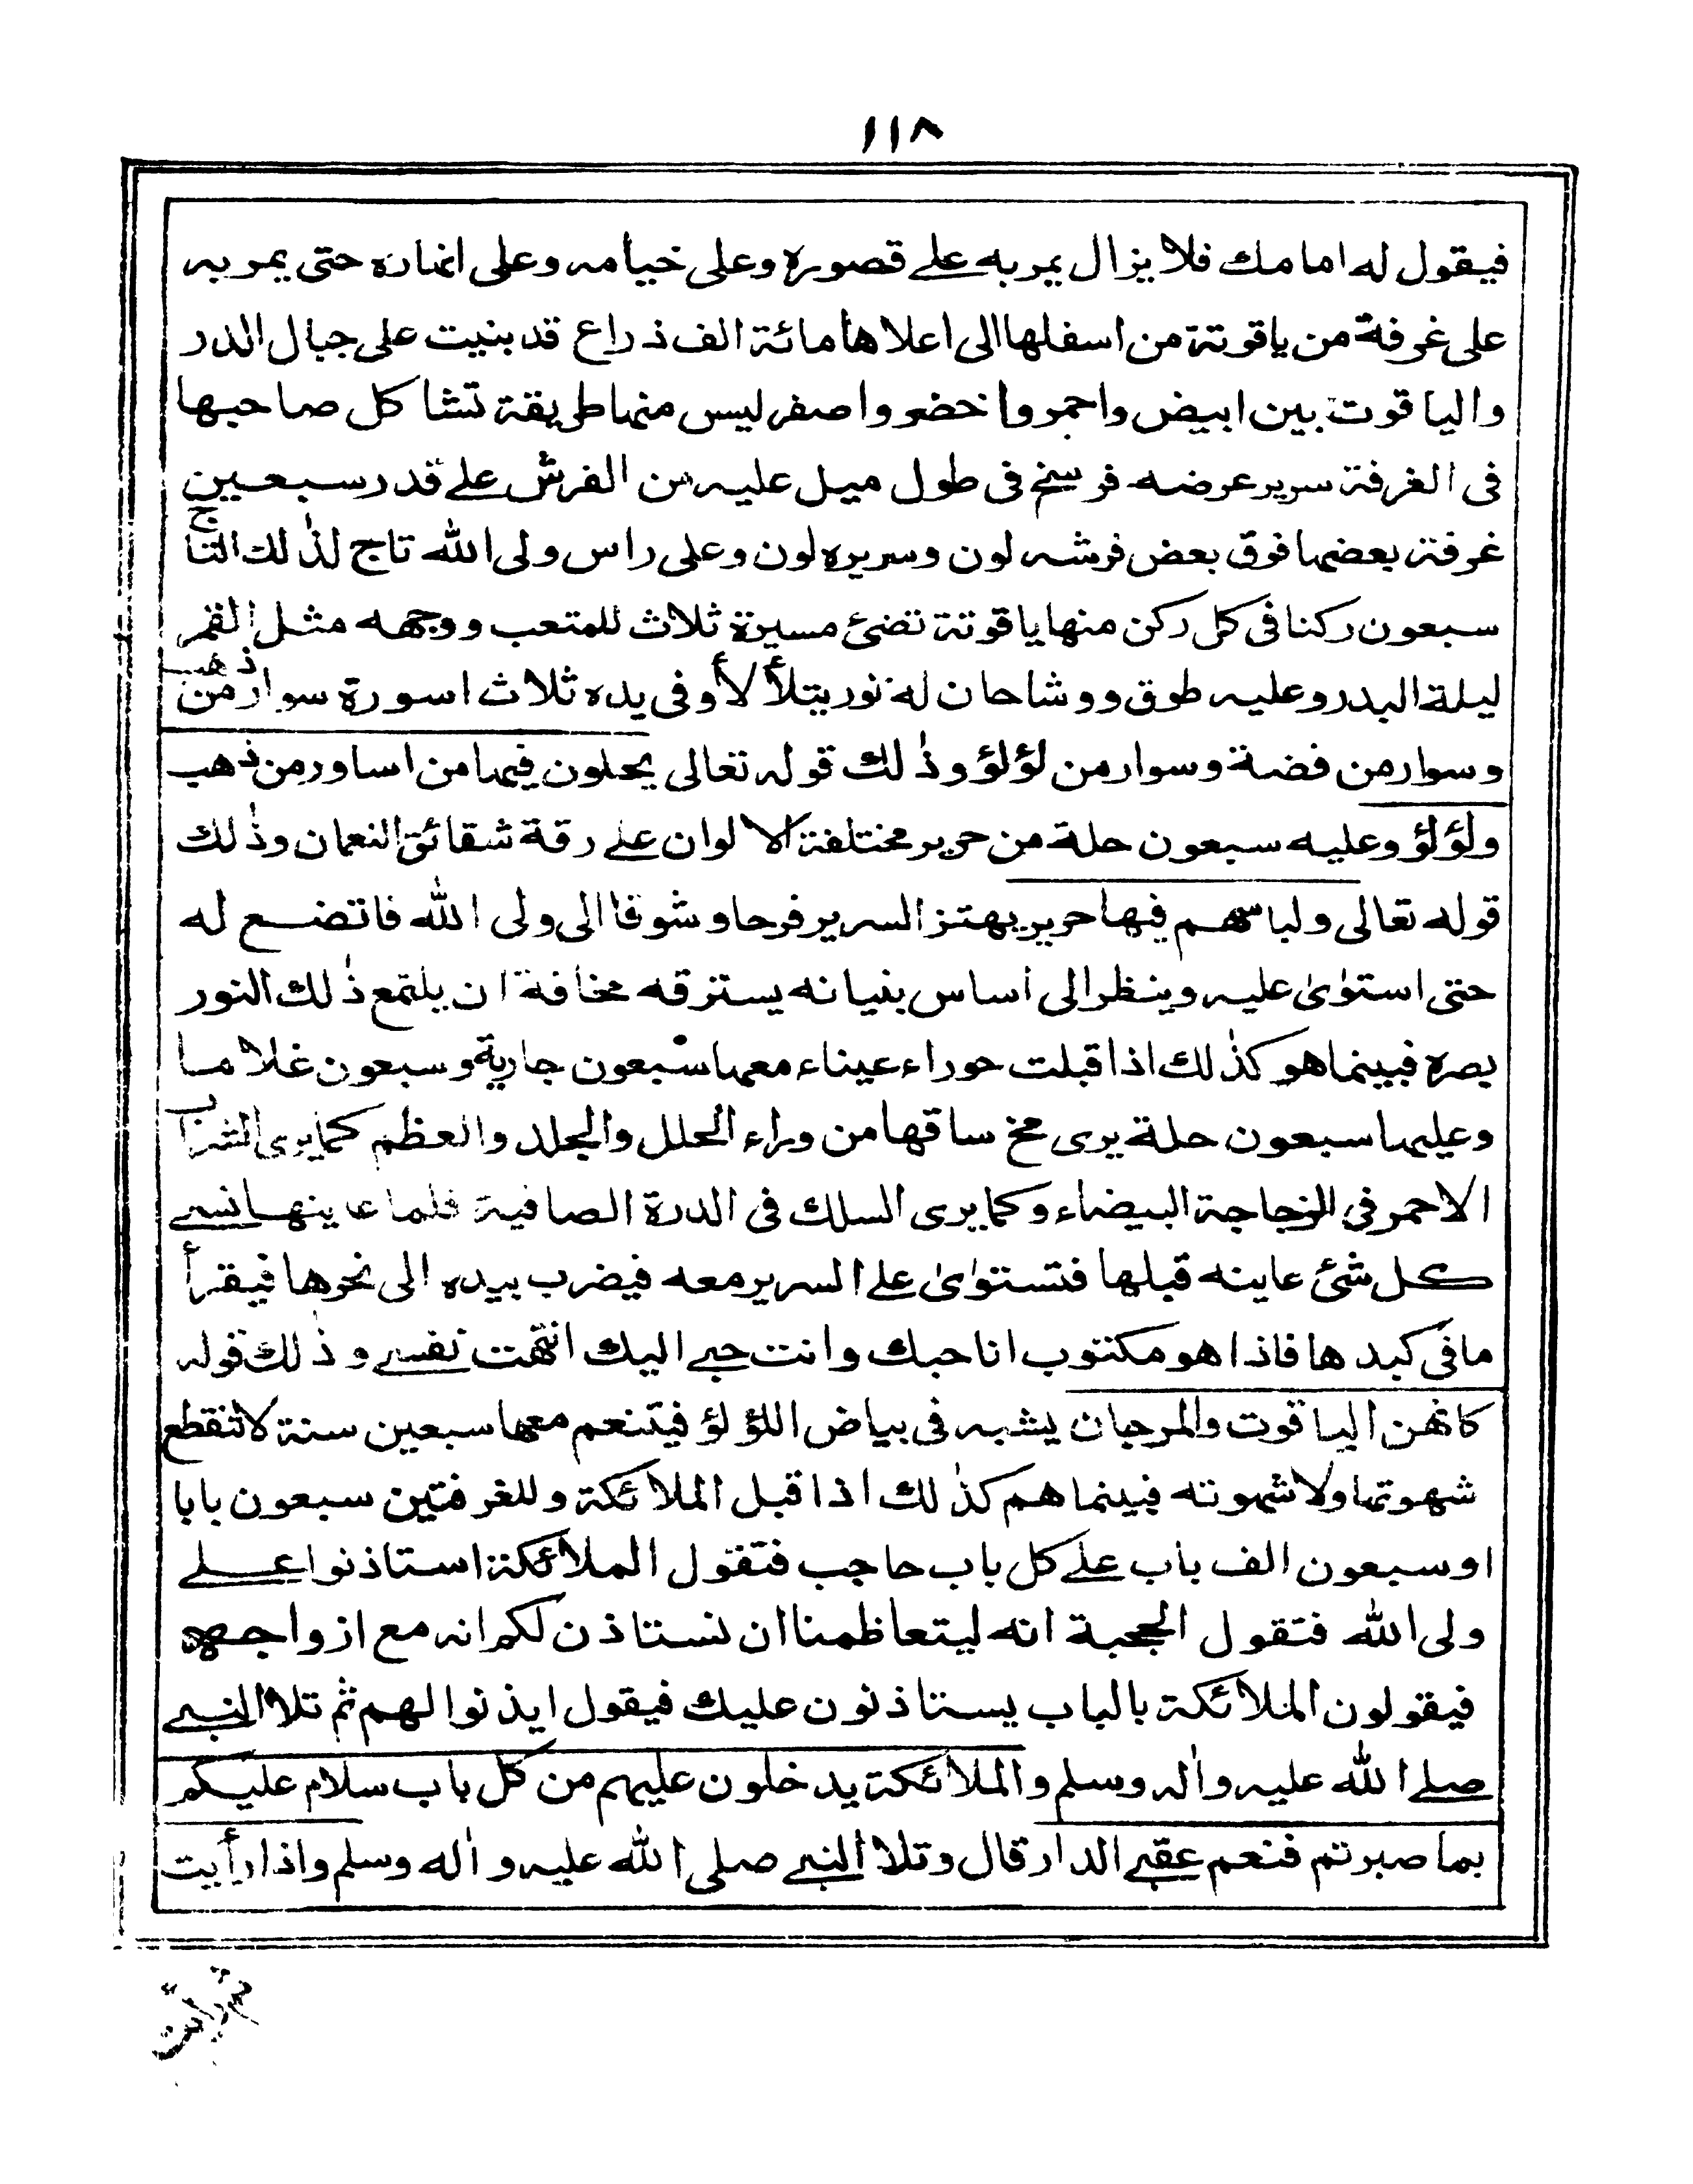 ١١٨
فيقول له امامك فلا يزال يمر به على قصوره وعلى خيامه وعلى انهاره حتى يمر به
على غرفة من ياقوتة من اسفلها الى اعلاها مائة الف ذراع قد بنيت على جبال الدر
والياقوت بين ابيض واحمر واخضر واصفر ليس منها طريقة تشاكل صاحبها
فى الغرفة سرير عرضه فرسخ فى طول ميل عليه من الفرش على قدر سبعين
غرفة بعضها فوق بعض فرشه لون وسريره لون وعلى راس ولى الله تاج لذلك التاج
سبعون ركنا فى كل ركن منها ياقوتة تضئ مسيرة ثلاث للمتعب ووجهه مثل القمر
ليلة البدر وعليه طوق ووشاحان له نور يتلألأ وفى يده ثلاث اسورة سوار من ذهب
وسوار من فضة وسوار من لؤلؤ وذلك قوله تعالى يحلون فيها من اساور من ذهب
ولؤلؤ وعليه سبعون حلة من حرير مختلفة الالوان على رقة شقائق النعمان وذلك
قوله تعالى ولباسهم فيها حرير يهتز السرير فرحا وشوقا الى ولى الله فاتضع له
حتى استوى عليه وينظر الى اساس بنيانه يسترقه مخافة ان يلتمع ذلك النور
بصره فبينما هو كذلك اذا قبلت حوراء عيناء معها سبعون جارية وسبعون غلاما
وعليها سبعون حلة يرى مخ ساقها من وراء الحلل والجلد والعظم كما يرى الشراب
الاحمر فى الزجاجة البيضاء وكما يرى السلك فى الدرة الصافية فلما عاينها نسى
كل شئ عاينه قبلها فتستوى على السرير معه فيضرب بيده الى نحرها فيقرأ
ما فى كبدها فاذا هو مكتوب انا حبك وانت حبى اليك انتهت نفسى وذلك قوله
كانهن الياقوت والمرجان يشبه فى بياض اللؤلؤ فيتنعم معها سبعين سنة لا تنقطع
شهوتها ولا شهوته فبينما هم كذلك اذا قبل الملائكة وللغرفتين سبعون بابا
او سبعون الف باب على كل باب حاجب فتقول الملائكة استاذنوا على
ولى الله فتقول الحجبة انه ليتعاظمنا ان نستاذن لكم انه مع ازواجه
فيقولون الملائكة بالباب يستاذنون عليك فيقول ايذنوا لهم ثم تلا النبى
صلى الله عليه واله وسلم والملائكة يدخلون عليهم من كل باب سلام عليكم
بما صبرتم فنعم عقبى الدار قال وتلا النبى صلى الله عليه واله وسلم واذا رأيت
ثم رأيت